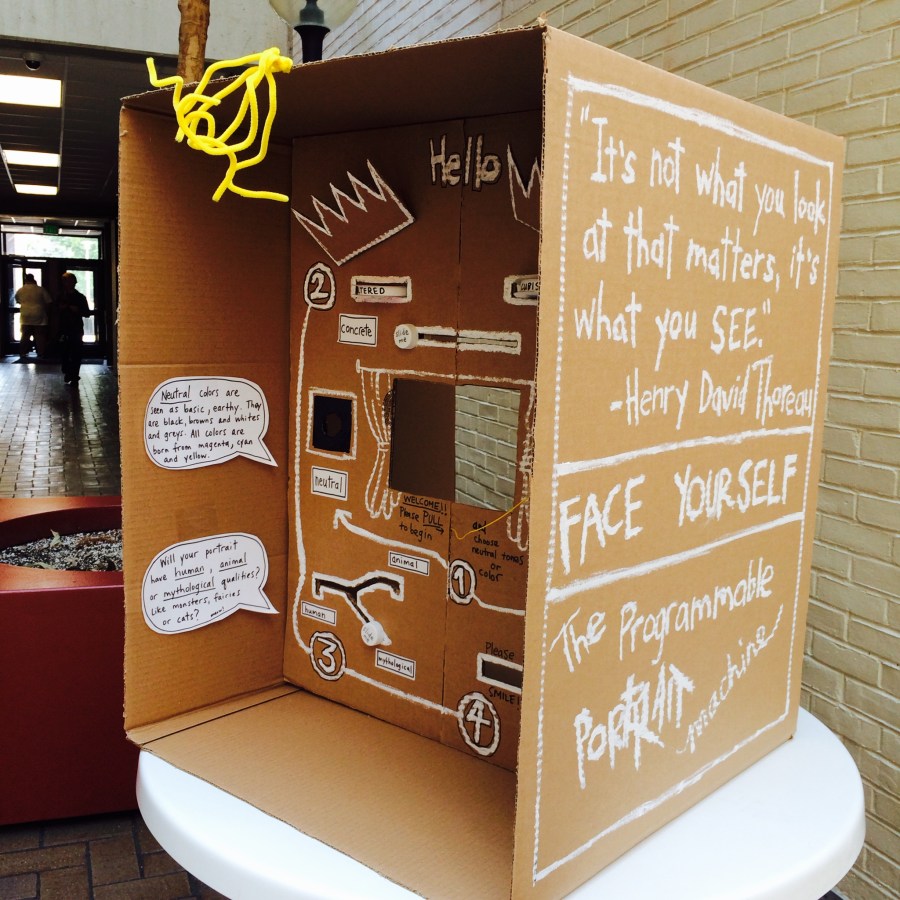 "It's not what you look
at that matters, it's
what you SEE."
-Henry David Thoreau
FACE YOURSELF
The Programmable
PORTRAIT
machine
Hello
2
TERED
concrete
Slide
me
neutral
WELCOME!!
Please PULL
to begin
and
choose
neutral tones
or
color
1
animal
human
mythological
3
Please
SMILE!
4
Neutral colors are
seen as basic, earthy. They
are black, browns and whites
and greys. All colors are
born from magenta, cyan
and yellow.
Will your portrait
have human, animal
or mythological qualities?
Like monsters, fairies
or cats? meow!